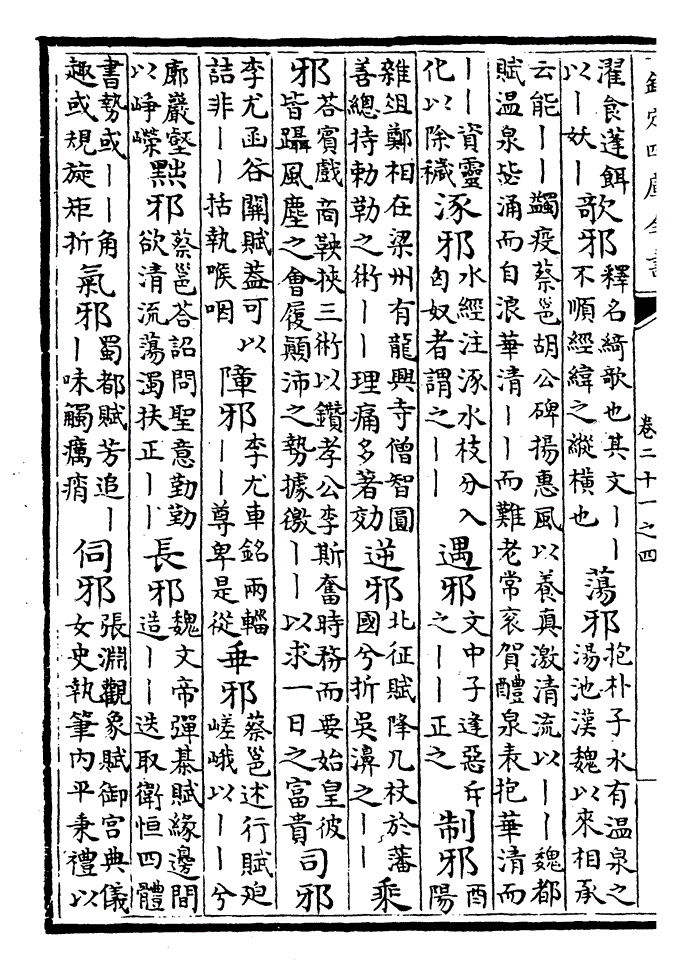 欽定四庫全書
卷二十一之四
濯食蓬餌
以丨妖丨
歌邪
釋名綺歌也其文丨丨
不順經緯之縱横也
蕩邪
抱朴子水有温泉之
湯池漢魏以來相承
云能丨丨蠲疫蔡邕胡公碑揚惠風以養真激清流以丨丨魏都
賦温泉毖涌而自浪華清丨丨而難老常衮賀醴泉表抱華清而
丨丨資靈
化以除穢
涿邪
水經注涿水枝分入
匈奴者謂之丨丨
遇邪
文中子逢惡斥
之丨丨正之
制邪
酉
陽
雜俎鄭相在梁州有龍興寺僧智圓
善總持勅勒之術丨丨理痛多著効
逆邪
北征賦降几杖於藩
國兮折吴濞之丨丨
乘
邪
荅賓戲商鞅挾三術以鑽孝公李斯奮時務而要始皇彼
皆躡風塵之會履顛沛之勢據徼丨丨以求一日之富貴
司邪
李尤函谷關賦葢可以
詰非丨丨括執喉咽
障邪
李尤車銘兩轓
丨丨尊卑是從
垂邪
蔡邕述行賦廹
嵯峨以丨丨兮
廓巖壑
以崢嶸
黜邪
蔡邕荅詔問聖意勤勤
欲清流蕩濁扶正丨丨
長邪
魏文帝彈棊賦緣邊間
造丨丨迭取衛恒四體
書勢或丨丨角
趣或規旋矩折
氣邪
蜀都賦芳追丨
丨味觸癘痟
伺邪
張淵觀象賦御宫典儀
女史執筆内平秉禮以